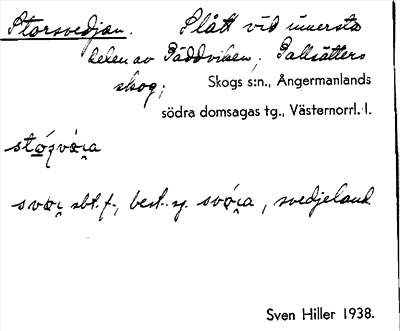 Storsvedjan. Slått vid innersta
delen av Päddviken; Pallsätters
skog; Skogs s:n., Ångermanlands
södra domsagas tg., Västernorrl. l.
sbt. f., best. sg. , svedjeland
Sven Hiller 1938.